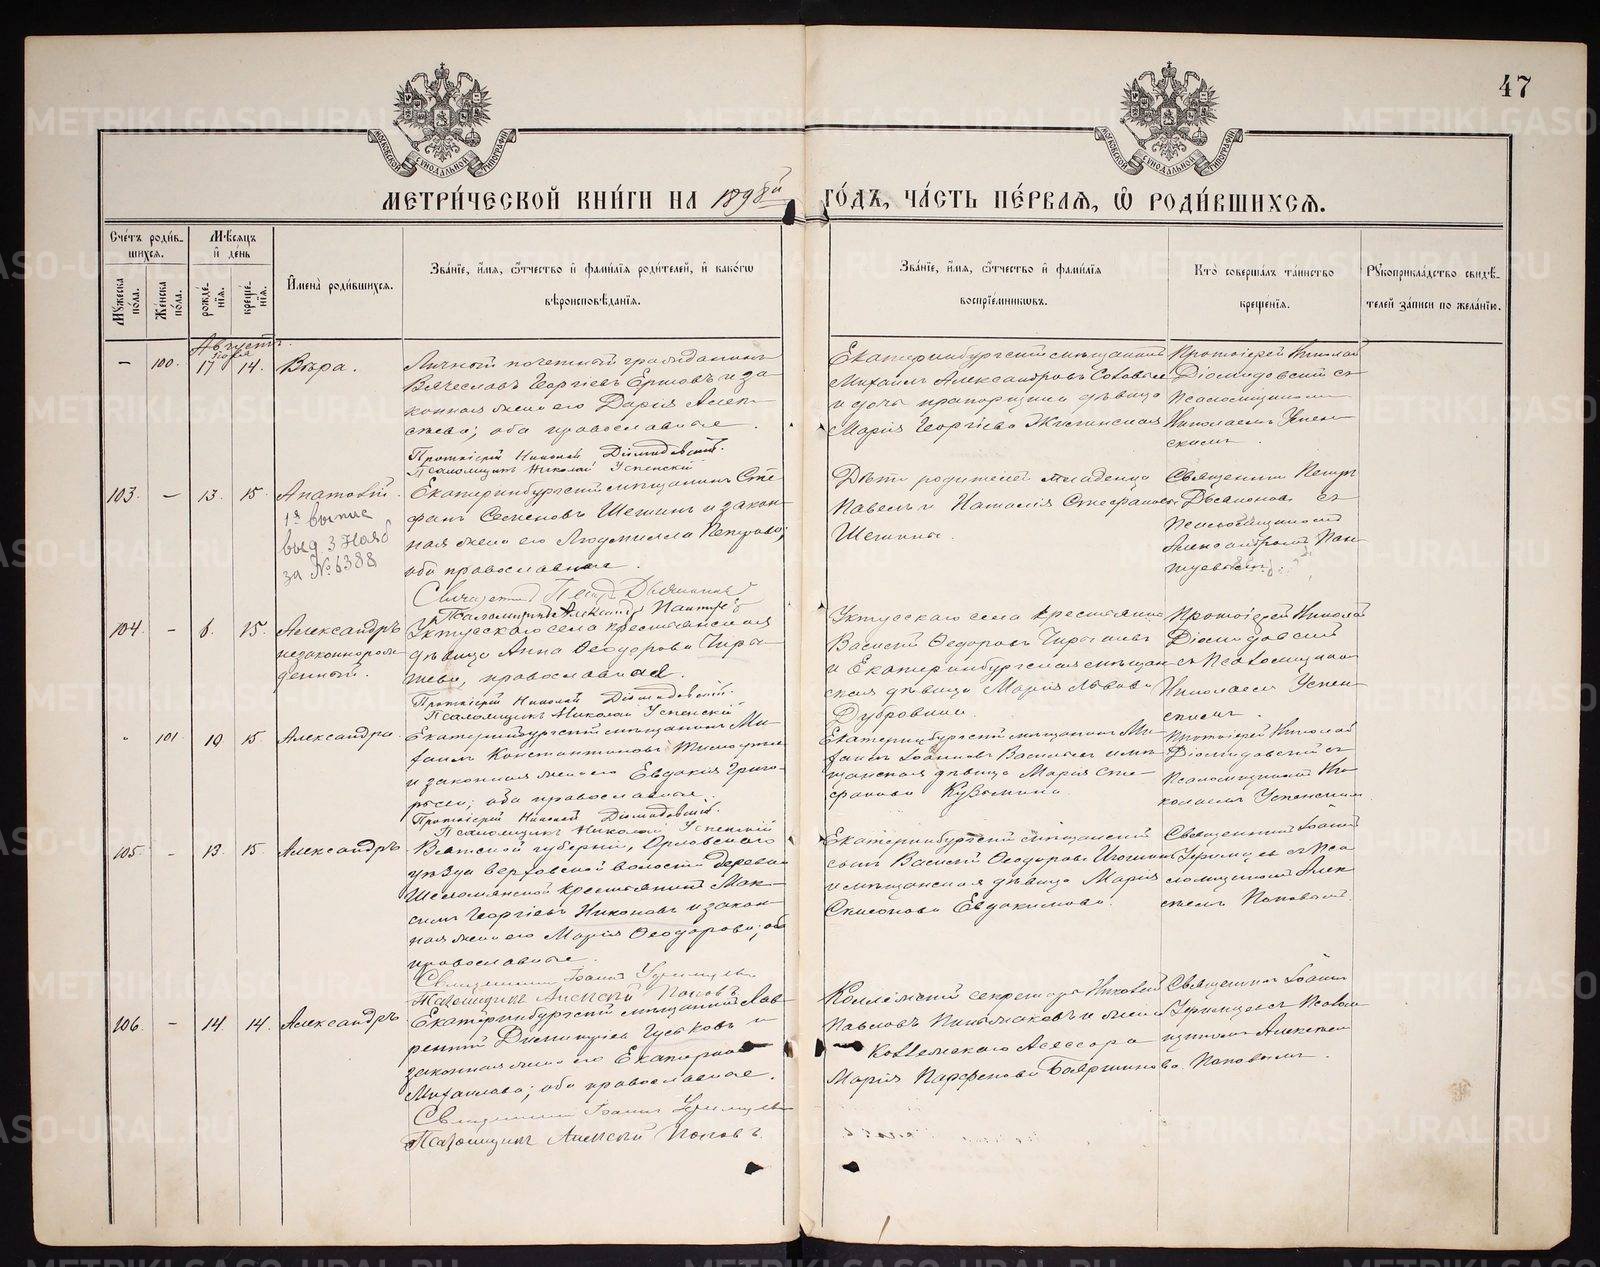 47
МЕТРИ́ЧЕСКОЙ КНИ́ГИ НА 1898й ГО́ДЪ, ЧА́СТЬ ПЕ́РВАЯ, Ѿ РОДИ́ВШИХСЯ.
Сче́тъ роди́в-
шихся.
Му́жеска
по́ла.
Же́нска
по́ла.
Мѣ́сяцъ
и де́нь
рожде́-
нія.
креще́-
нія.
Имена́ роди́вшихся.
Зва́ніе, и́мя, о́тчество и фами́лія роди́телей, и како́гѡ
вѣроисповѣ́данія.
Зва́ніе, и́мя, о́тчество и фами́лія
воспріе́мниковъ.
Кто̀ соверша́лъ та́инство
креще́нія.
Рукоприкла́дство свидѣ́-
телей за́писи по жела́нію.
Августъ.
— 100. Iюля 17 14. Вѣра.
Личный почетный гражданинъ
Вячеславъ Георгіевъ Ершовъ и за
конная жена его Дарія Алек-
сѣева; оба православные.
Протоіерей Николай Діомидовскій.
Псаломщикъ Николай Успенскій
Екатеринбургскій мѣщанинъ
Михаилъ Александровъ
и дочь прапорщика дѣвица
Марія Георгіева
Протоіерей Николай
Діомидовскій съ
псаломщикомъ
Николаемъ Успен-
скимъ.
103. — 13. 15.
1я выпис
выд 3 Нояб
за № 6388
Екатеринбургскій мѣщанинъ Сте
фанъ Семеновъ и закон-
ная жена его Людмилла Петрова;
оба православные.
Священникъ Петръ
Псаломщикъ Александръ
Дѣти родителей младенца
Павелъ и Наталія Стефановы
Священникъ Петръ
съ
Псаломщикомъ
Александромъ Пан-
104. — 6. 15. Александръ
незаконнорож-
денный.
Уктусскаго села крестьянская
дѣвица Анна Ѳеодорова Чиры-
шева, православная.
Протоіерей Николай Діомидовскій.
Псаломщикъ Николай Успенскій
Уктусскаго села крестьянинъ
Василій Ѳедоровъ
и Екатеринбургская мѣщан-
ская дѣвица Марія Львова
Дубровина.
Протоіерей Николай
Діомидовскій
съ псаломщикомъ
Николаемъ Успен-
скимъ.
" 101. 10 15. Александра.
Екатеринбургскій мѣщанинъ Ми-
хаилъ Константиновъ
и законная жена его Евдокія Григо-
рьева; оба православные.
Протоіерей Николай Діомидовскій.
Псаломщикъ Николай Успенскій
Екатеринбургскій мѣщанинъ Ми-
хаилъ Іоанновъ Васильевъ и мѣ-
щанская дѣвица Марія Сте-
фанова Кузьмина.
Протоіерей Николай
Діомидовскій съ
псаломщикомъ Ни-
колаемъ Успенскимъ
105. — 13. 15. Александръ.
Вятской губерніи, Орловскаго
уѣзда Верховской волости деревни
крестьянинъ Мак-
симъ Георгіевъ Никоновъ и закон-
ная жена его Марія Ѳеодорова; оба
православные.
Священникъ Іоаннъ
Псаломщикъ Алексѣй Поповъ
Екатеринбургскій мѣщанскій
сынъ Василій Ѳеодоровъ
и мѣщанская дѣвица Марія
Симеонова Евдокимова.
Священникъ Іоаннъ
съ пса
ломщикомъ Алек-
сѣемъ Поповымъ.
106. — 14. 14. Александръ.
Екатеринбургскій мѣщанинъ Лав-
рентій Димитріевъ Гусковъ и
законная жена его Екатерина
Михаилова; оба православные.
Священникъ Іоаннъ
Псаломщикъ Алексѣй Поповъ.
Коллежскій секретарь Николай
Павловъ и жена
Коллежскаго Асессора
Марія Парфенова Бояршинова.
Священникъ Іоаннъ
псалом-
щикомъ Алексѣемъ
Поповымъ.